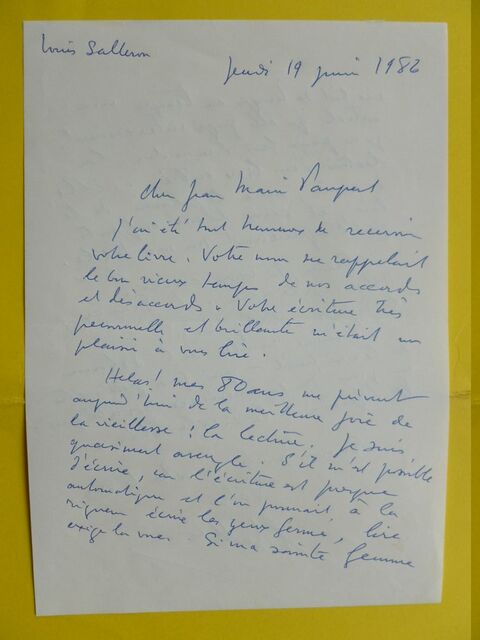 Louis Salleron
Jeudi 19 juin 1986
Cher Jean Marie Paupert
J'ai été tout heureux de recevoir
votre livre. Votre nom me rappelait
le bon vieux temps de nos accords
et désaccords. Votre écriture très
personnelle et brillante m'était un
plaisir à vous lire.
Hélas! mes 80 ans me privent
aujourd'hui de la meilleure joie de
la vieillesse : la lecture. Je suis
quasiment aveugle. S'il m'est possible
d'écrire, car l'écriture est presque
automatique et l'on pourrait à la
rigueur écrire les yeux fermé, lire
exige la vue. Si ma sainte femme